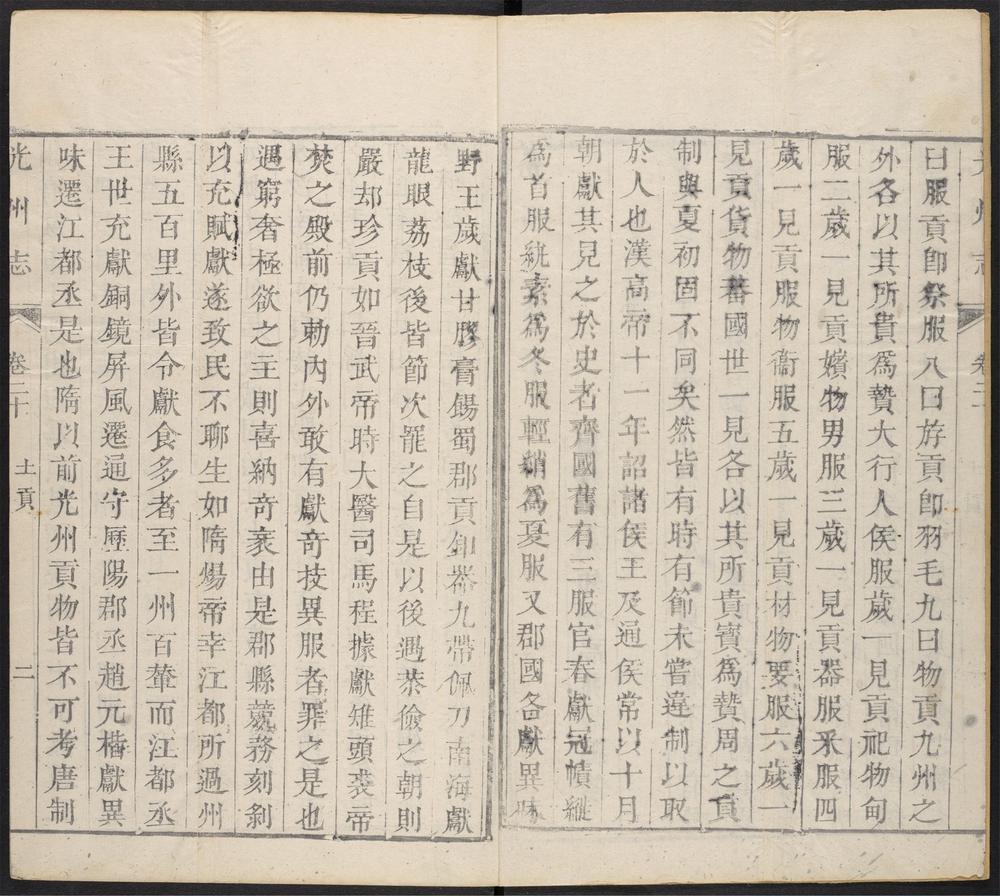 曰服貢卽祭服八曰斿貢卽羽毛九曰物貢九州之
外各以其所貴爲贄大行人侯服歲一見貢祀物甸
服二歲一見貢嬪物男服三歲一見貢器服釆服四
歲一見貢服物衞服五歲一見貢材物要服六歲一
見貢貨物蕃國世一見各以其所貴寶爲贄周之貢
制與夏初固不同矣然皆有時有節未嘗違制以取
於人也漢高帝十一年詔諸侯王及通侯常以十月
朝獻其見之於史者齊國舊有三服官春獻冠幘縰
爲首服紈素爲冬服輕綃爲夏服又郡國各獻異味
野王歲獻甘膠膏餳蜀郡貢釦器九帶佩刀南海獻
龍眼荔枝後皆節次罷之自是以後遇恭儉之朝則
嚴却珍貢如晉武帝時大醫司馬程據獻雉頭裘帝
焚之殿前仍勅內外敢有獻奇技異服者罪之是也
遇窮奢極欲之主則喜納奇袤由是郡縣競務刻剝
以充賦獻遂致民不聊生如隋煬帝幸江都所過州
縣五百里外皆令獻食多者至一州百轝而江都丞
王世充獻銅鏡屏風遷通守歷陽郡丞趙元楷獻異
味遷江都丞是也隋以前光州貢物皆不可考唐制
光州志 卷二十 土貢 二